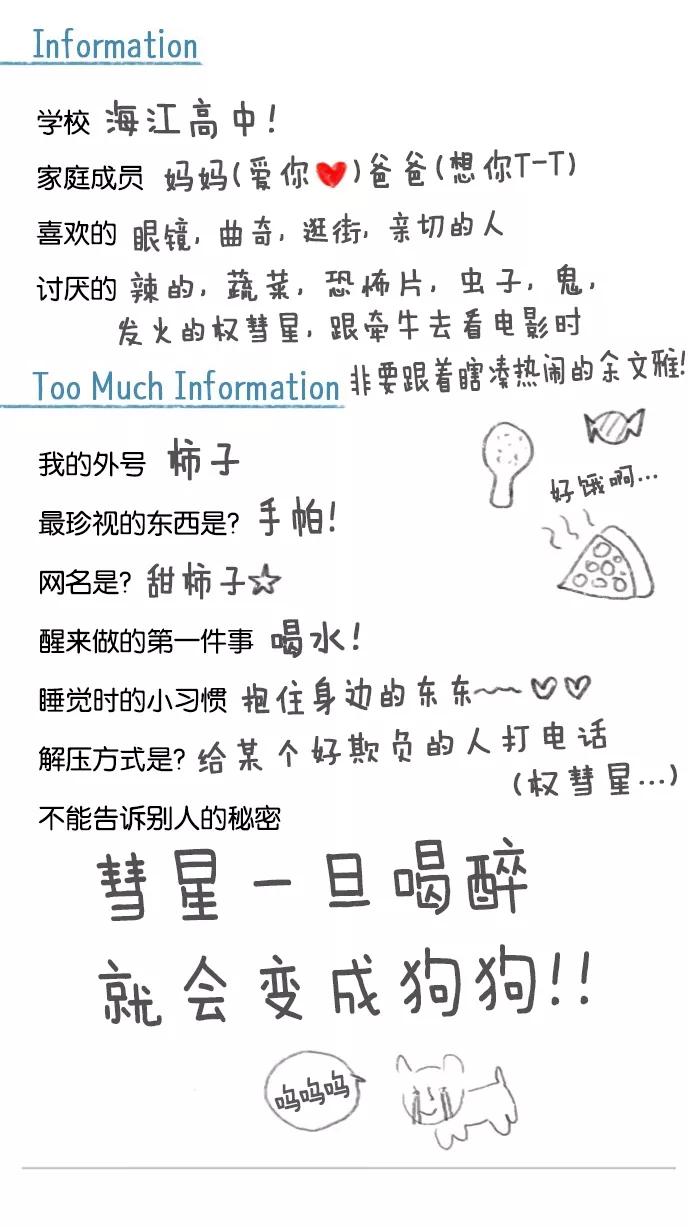 Information
学校 海江高中!
家庭成员 妈妈(爱你❤)爸爸(想你T-T)
喜欢的 眼镜, 曲奇, 逛街, 亲切的人
讨厌的 辣的, 蔬菜, 恐怖片, 虫子, 鬼,
发火的权彗星, 跟牵牛去看电影时
非要跟着瞎凑热闹的余文雅!
Too Much Information
我的外号 柿子
好饿啊...
最珍视的东西是? 手帕!
网名是? 甜柿子☆
醒来做的第一件事 喝水!
睡觉时的小习惯 抱住身边的东东~~♡♡
解压方式是? 给某个好欺负的人打电话
(权彗星...)
不能告诉别人的秘密
彗星一旦喝醉
就会变成狗狗!!
呜呜呜